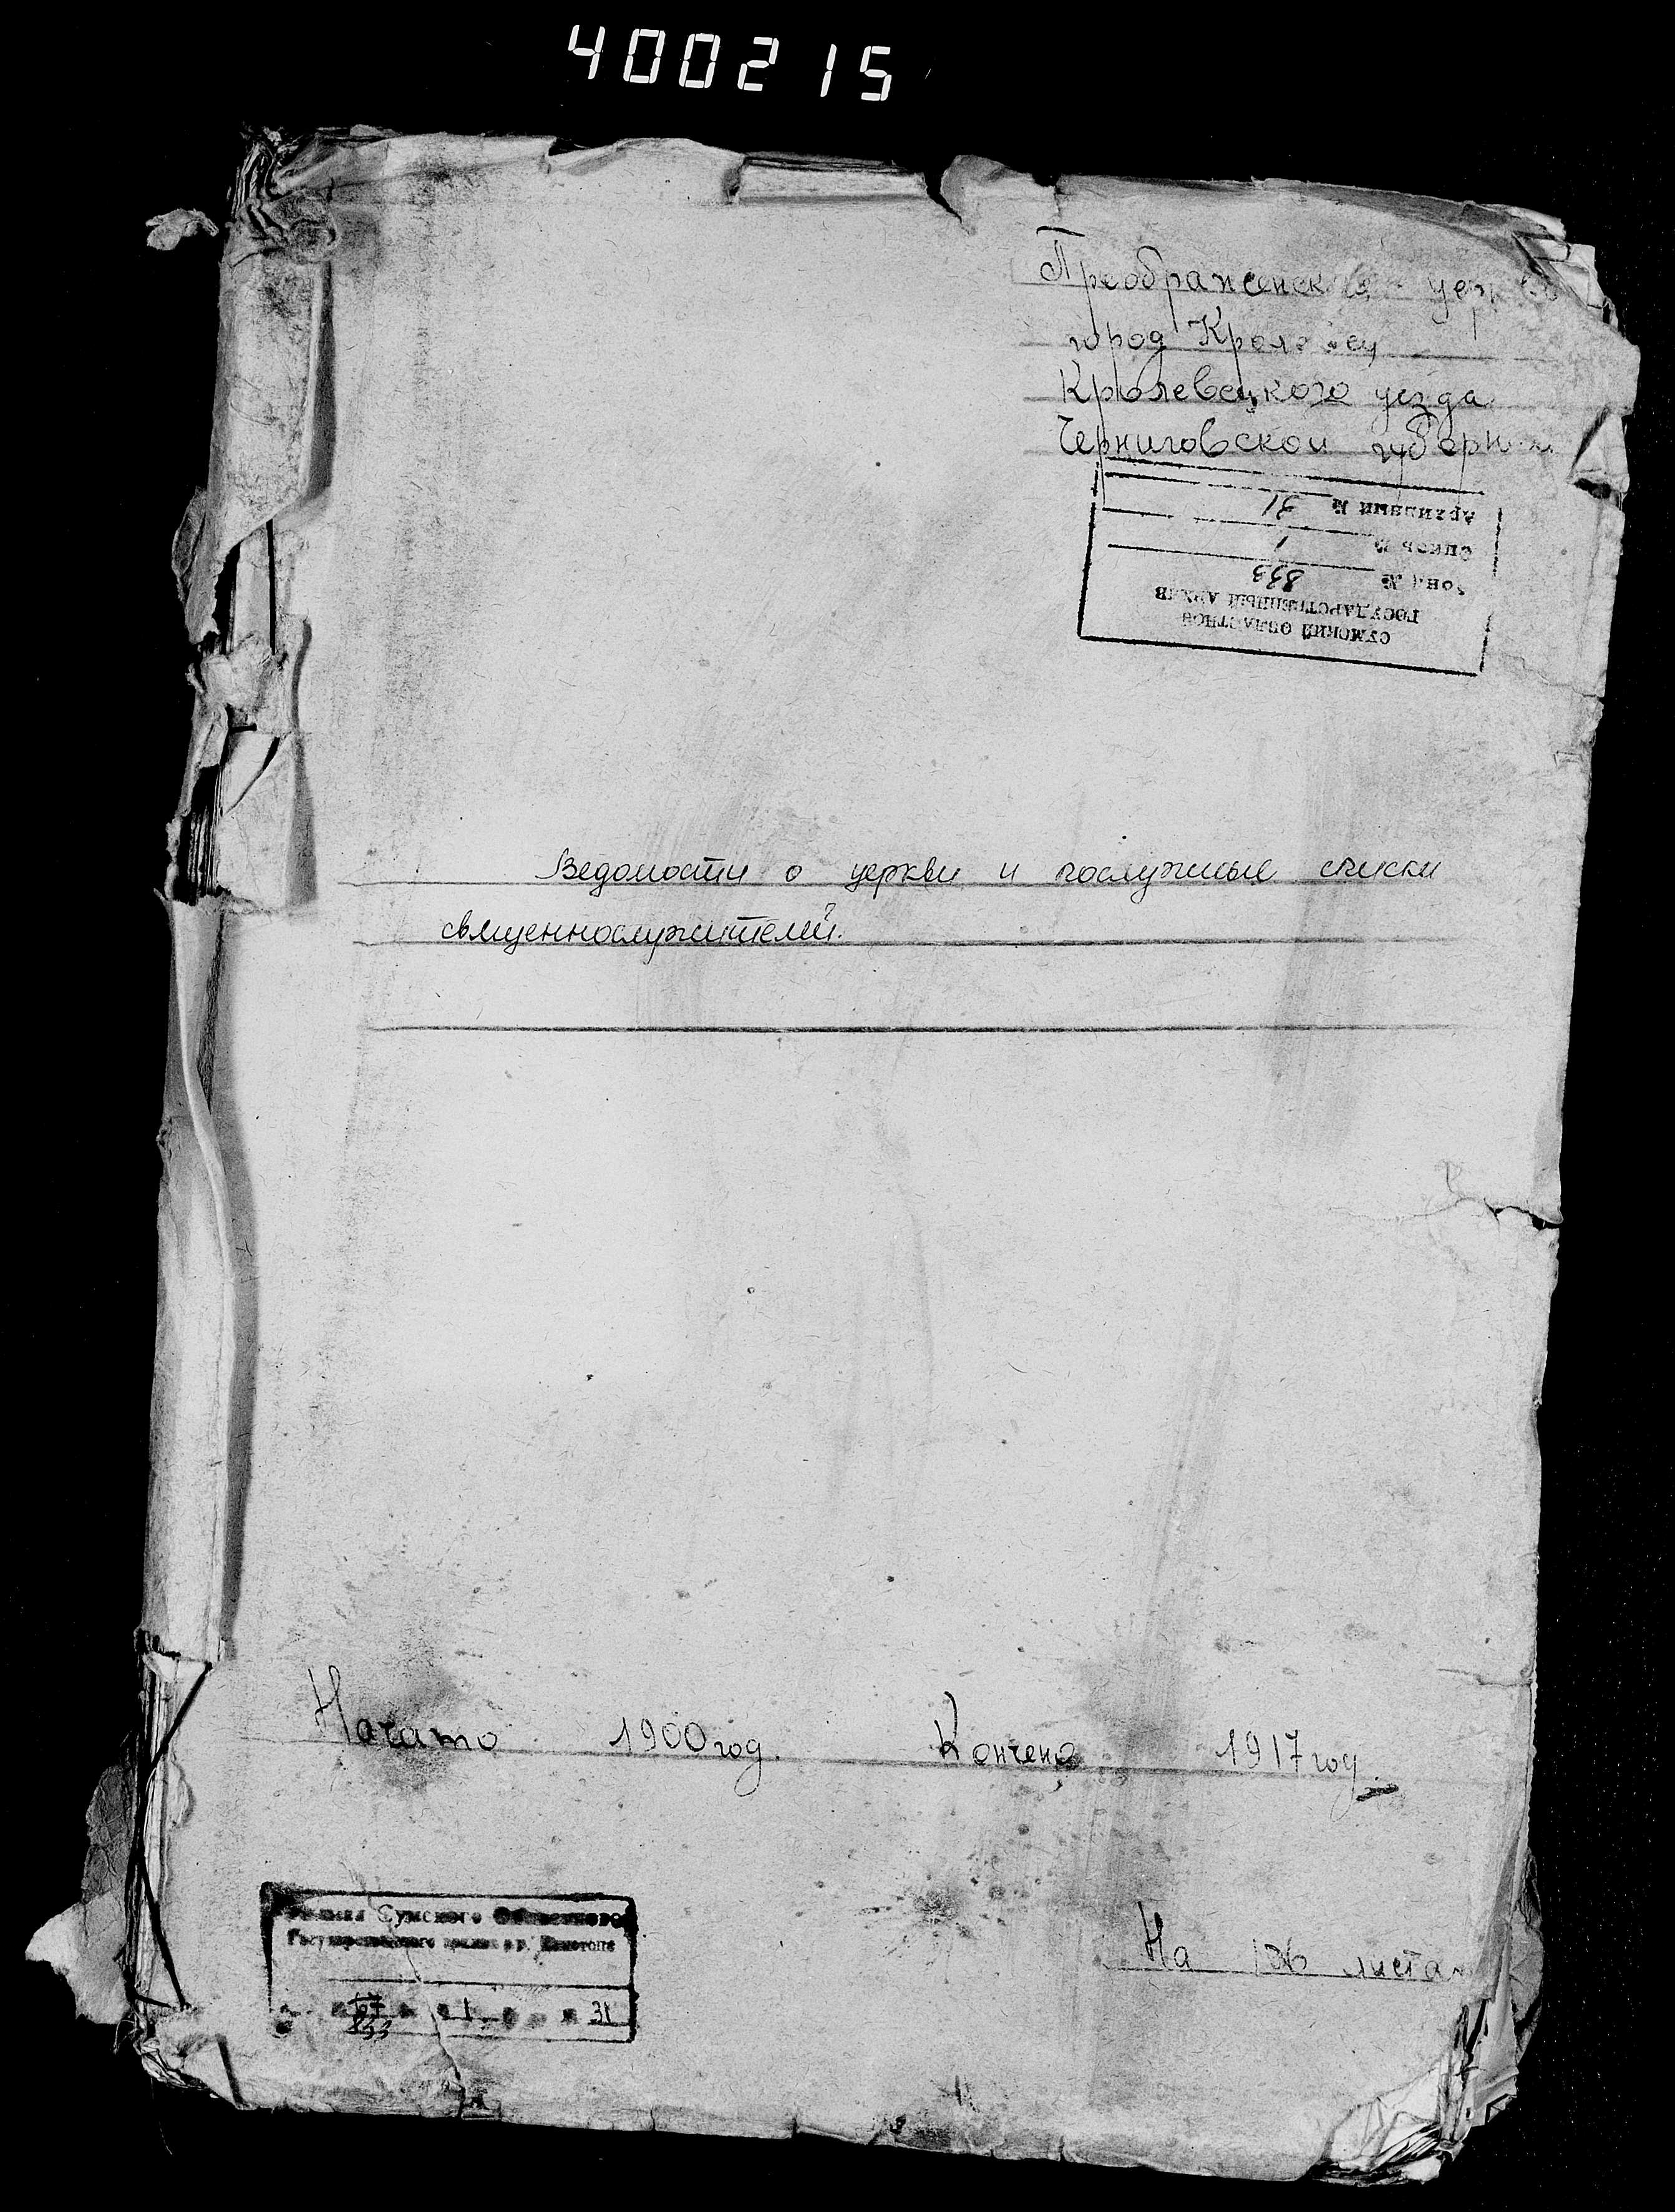 400215
Преображенск
город Кролевец
Кролевецкого уезда
Черниговской губернии
Архивный № 31
Опись № 1
Фонд № 833
ГОСУДАРСТВЕННЫЙ АРХИВ
СУМСКИЙ ОБЛАСТНОЙ
Ведомости о церкви и послужные списки
священнослужителей.
Начато 1900 год. Кончено 1917 год.
Сумского Областного
Государственного архива в г. Конотопе
833 1 31
На листах